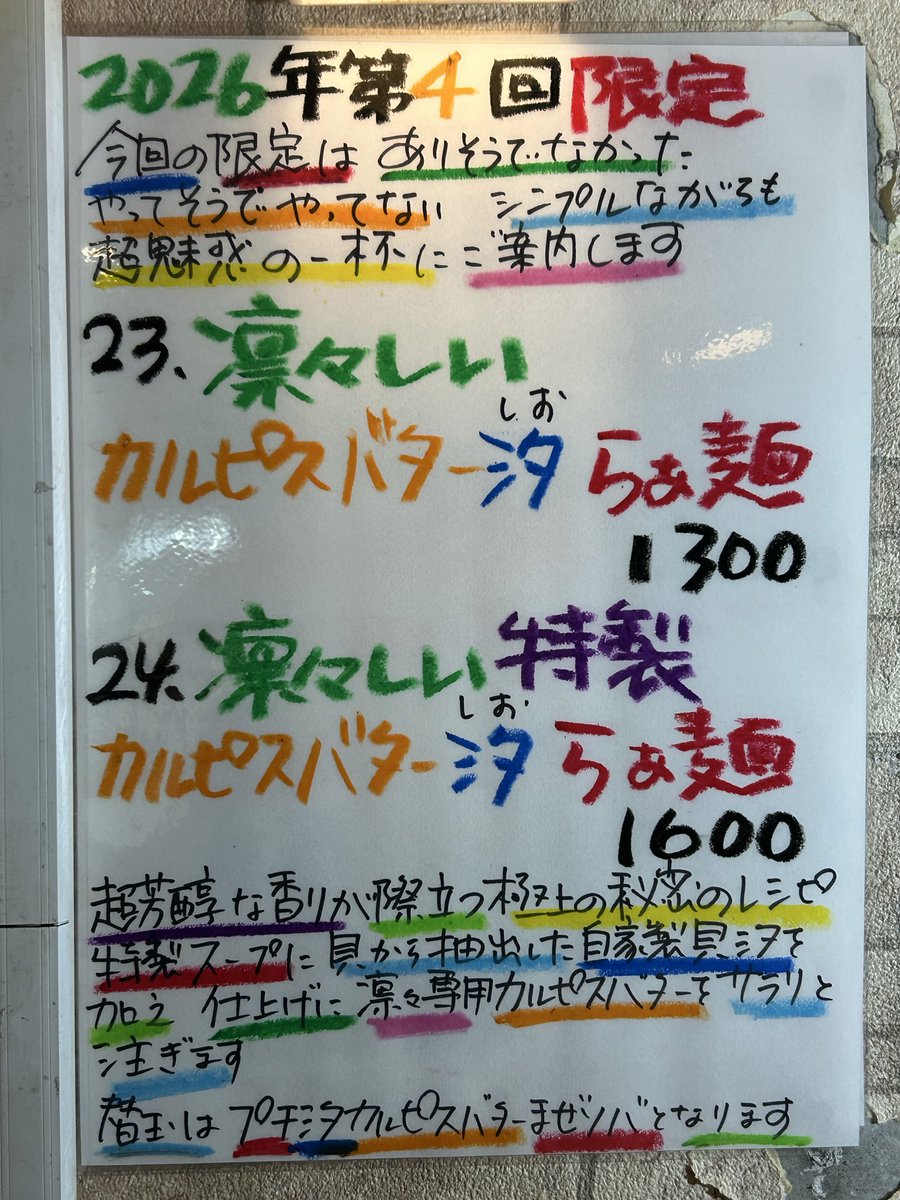 2026年第4回限定
今回の限定は ありそうでなかった
やってそうでやってない シンプルながらも
超魅惑の一杯にご案内します
23. 凛々しい
しお
カルピスバター汐 らぁ麺
1300
24. 凛々しい特製
しお
カルピスバター汐 らぁ麺
1600
超芳醇な香りが際立つ極上の秘密のレシピ
特製スープに貝から抽出した自家製貝汐を
加え 仕上げに凛々専用カルピスバターをサラリと
注ぎます
替玉はプチ汐カルピスバターまぜソバとなります